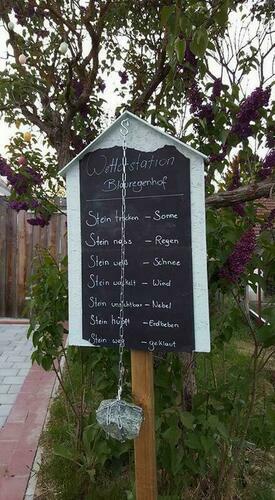 Wetterstation
Blauregenhof
Stein trocken – Sonne
Stein nass – Regen
Stein weiß – Schnee
Stein wackelt – Wind
Stein unsichtbar – Nebel
Stein hüpft – Erdbeben
Stein weg – geklaut